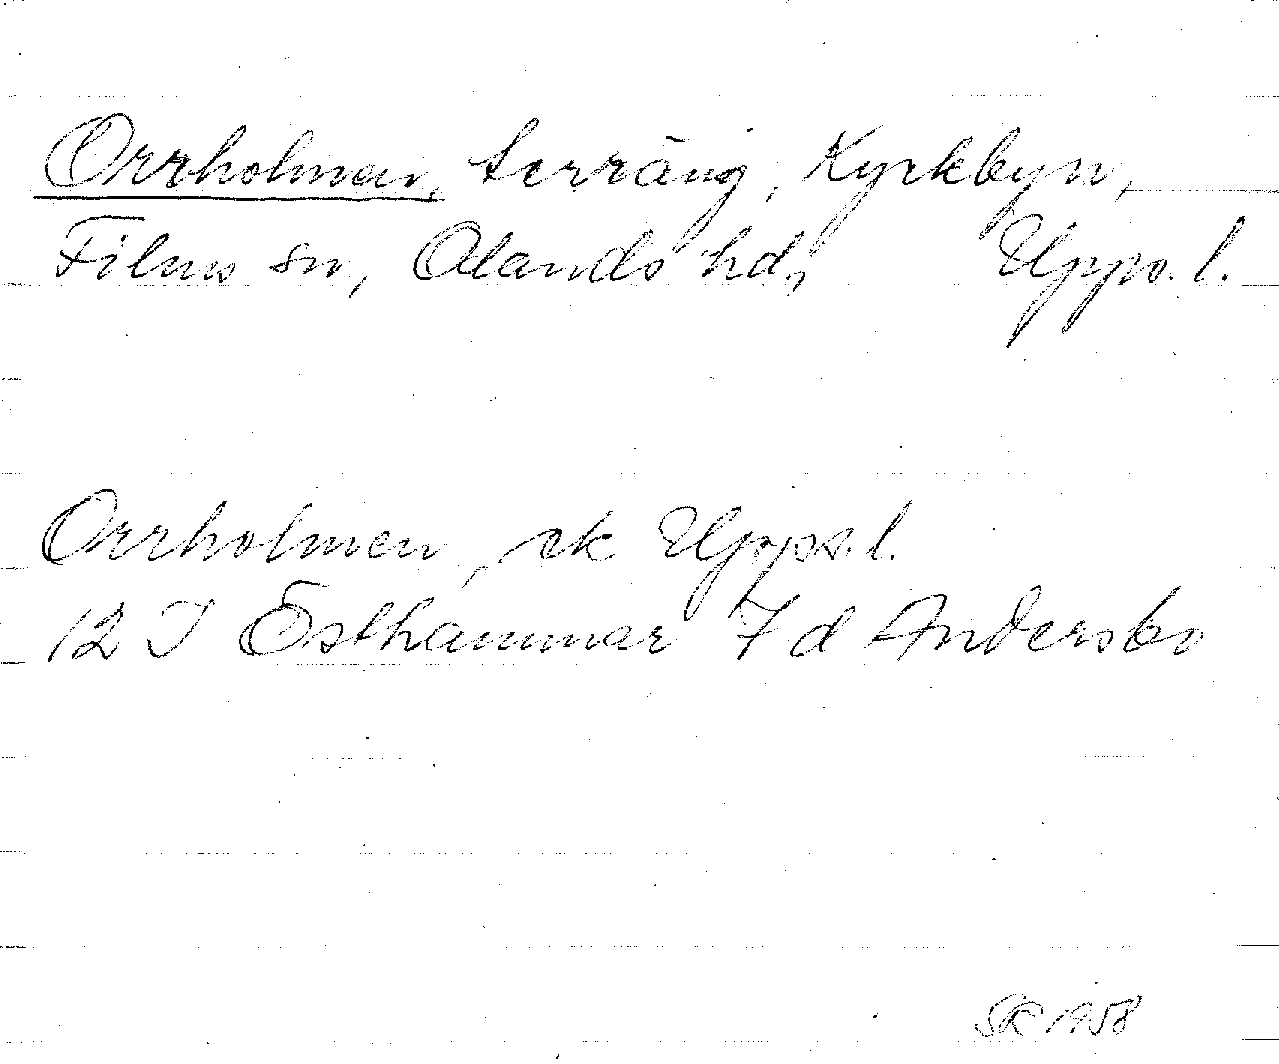 Orrholmen, terräng, Kyrkbyn,
Films sn, Olands hd, Upps. l.
Orrholmen, ek Upps. l.
12 I Östhammar 7 d Andersbo
SK 1958